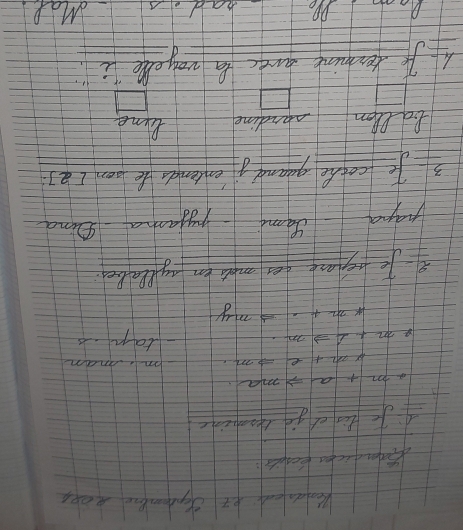 Vendredi 27 Septembre 2024
Exercices écrits :
1- Je lis et je termine :
* m + a → ma. - m . man
* m + e → m . - tap . s
* m + i → m .
* m + . → my
2- Je sépare ces mots en syllabes :
papa - Sami - pyjama - Lina
3- Je coche quand j'entends le son [a] :
ballon sardine lune
4- Je termine avec la voyelle "i" :
rad . s - Mal .